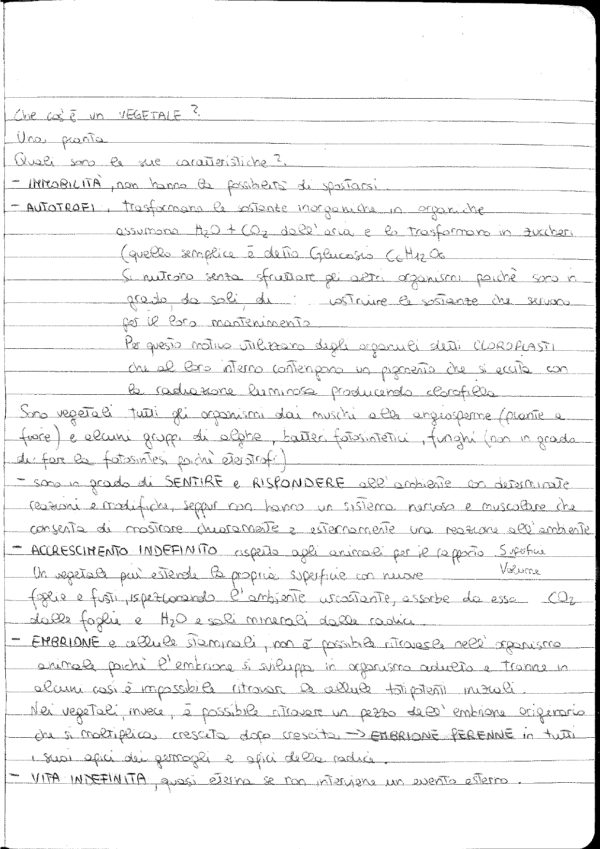 Che cos'è un VEGETALE?
Una pianta
Quali sono le sue caratteristiche?
- IMMOBILITÀ, non hanno la possibilità di spostarsi.
- AUTOTROFI, trasformano le sostanze inorganiche in organiche
assumono H2O + CO2 dall'aria e lo trasformano in zuccheri
(quello semplice è detto Glucosio C6H12O6
Si nutrono senza sfruttare gli altri organismi poichè sono in
grado, da soli, di : costruire le sostanze che servono
per il loro mantenimento
Per questo motivo utilizzano degli organuli detti CLOROPLASTI
che al loro interno contengono un pigmento che si eccita con
la radiazione luminosa producendo clorofilla
Sono vegetali tutti gli organismi dai muschi alle angiosperme (piante a
fiore) e alcuni gruppi di alghe, batteri fotosintetici, funghi (non in grado
di fare la fotosintesi poichè eterotrofi)
- sono in grado di SENTIRE e RISPONDERE all'ambiente con determinate
reazioni e modifiche, seppur non hanno un sistema nervoso e muscolare che
consenta di mostrare chiaramente e esternamente una reazione all'ambiente
- ACCRESCIMENTO INDEFINITO rispetto agli animali per il rapporto Superficie
Volume
Un vegetale può estende la propria superficie con nuove
foglie e fusti, ispezionando l'ambiente circostante, assorbe da esso CO2
dalle foglie e H2O e sali minerali dalle radici.
- EMBRIONE e cellule staminali, non è possibile ritrovarle nell'organismo
animale poichè l'embrione si sviluppa in organismo adulto e tranne in
alcuni casi è impossibile ritrovare le cellule totipotenti iniziali.
Nei vegetali, invece, è possibile ritrovare un pezzo dell'embrione originario
che si moltiplica crescita dopo crescita → EMBRIONE PERENNE in tutti
i suoi apici dei germogli e apici delle radici.
- VITA INDEFINITA, quasi eterna se non interviene un evento esterno.